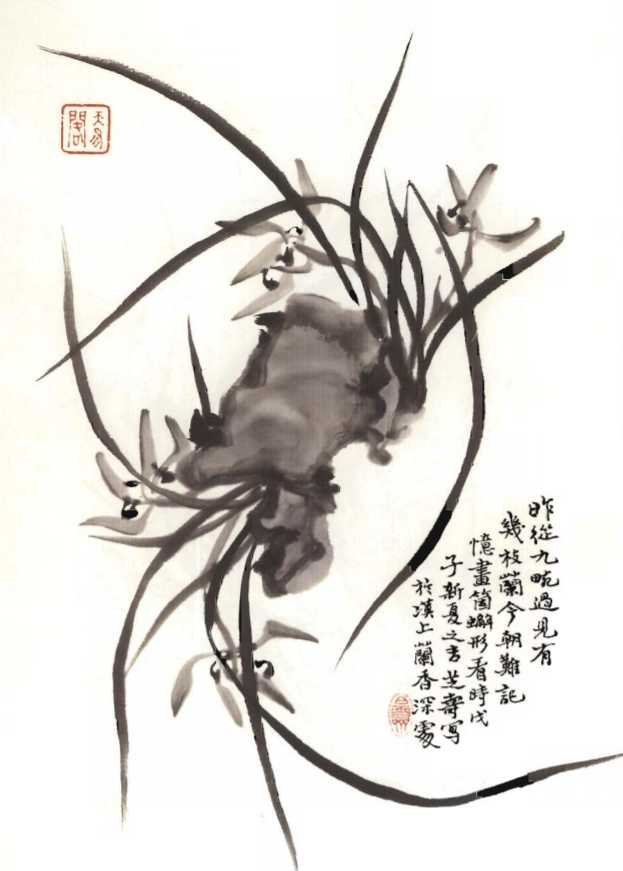 昨從九畹過見有
幾枝蘭今朝難記
憶畫箇蠏形看時戊
子新夏之吉芝壽写
於漢上蘭香深處
天易閣